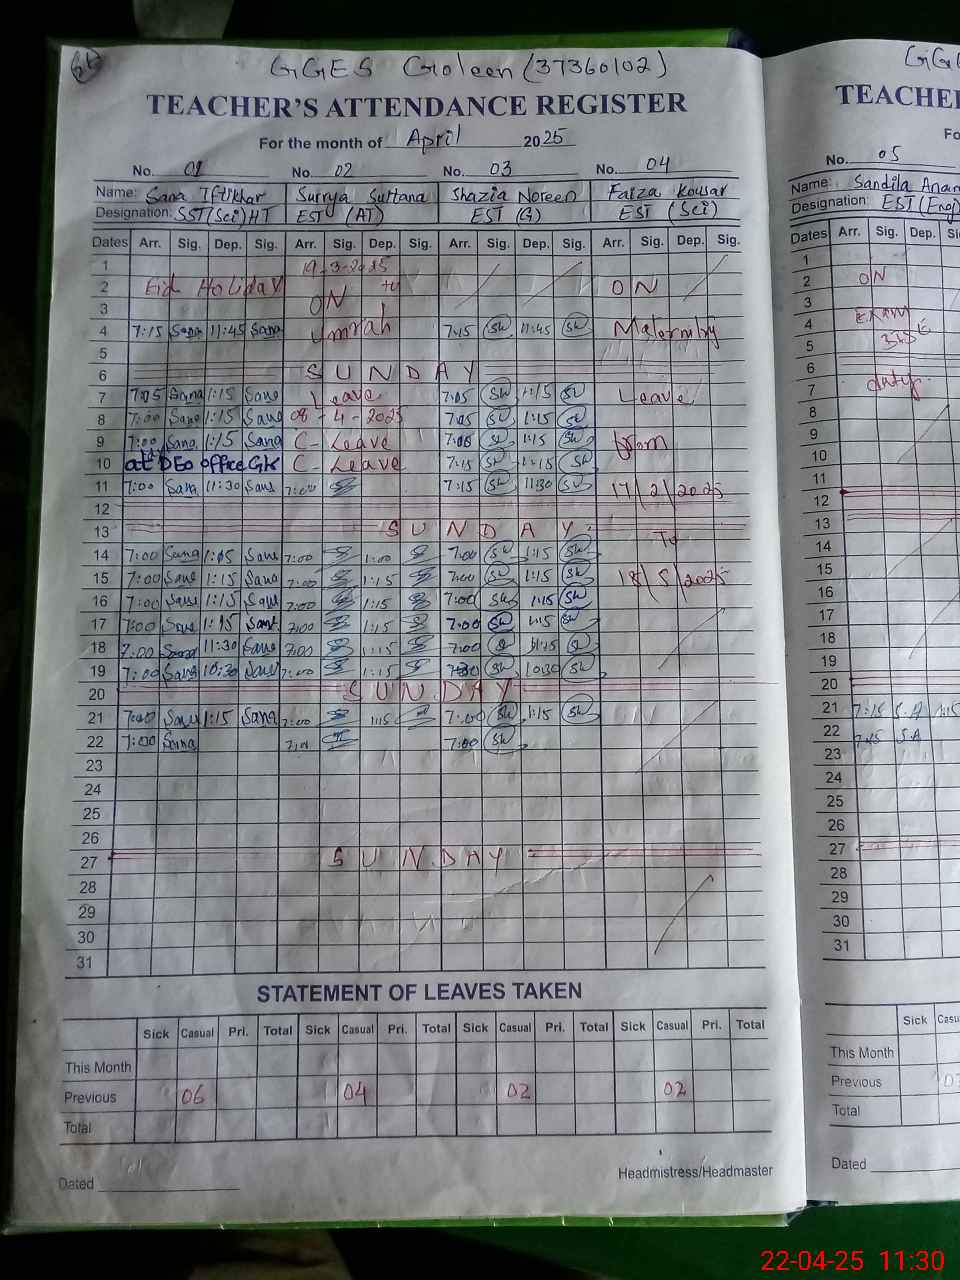 GGES Goleen (37360102)
TEACHER'S ATTENDANCE REGISTER
For the month of April 2025
No. 01 No. 02 No. 03 No. 04
Name: Sana Iftikhar Surrya Sultana Shazia Noreen Faiza Kousar
Designation: SST(Sci)HT EST (AT) EST (G) EST (Sci)
Dates Arr. Sig. Dep. Sig. Arr. Sig. Dep. Sig. Arr. Sig. Dep. Sig. Arr. Sig. Dep. Sig.
1 19-3-2025
2 Eid Holiday ON to ON
3
4 7:15 Sana 11:45 Sana Umrah 7:15 SN 11:45 SN Maternity
5
6 SUNDAY
7 7:05 Sana 1:15 Sana Leave 7:05 SN 1:15 SN Leave
8 7:00 Sana 1:15 Sana 08-4-2025 7:05 SN 1:15 SN
9 7:00 Sana 1:15 Sana C-Leave 7:00 SN 1:15 SN from
10 at DEO office GK C-Leave 7:15 SN 1:15 SN
11 7:00 Sana 11:30 Sana 7:00 7:15 SN 11:30 SN 17/2/2025
12
13 SUNDAY To
14 7:00 Sana 1:05 Sana 7:00 1:00 7:00 SN 1:15 SN
15 7:00 Sana 1:15 Sana 7:00 1:15 7:00 SN 1:15 SN 18/5/2025
16 7:00 Sana 1:15 Sana 7:00 1:15 7:00 SN 1:15 SN
17 7:00 Sana 1:15 Sana 7:00 1:15 7:00 SN 1:15 SN
18 7:00 Sana 11:30 Sana 7:00 1:15 7:00
19 7:00 Sana 10:30 Sana 7:00 1:15 SN 10:30 SN
20 SUNDAY
21 7:00 Sana 1:15 Sana 7:00 1:15 7:00 SN 1:15 SN
22 7:00 Sana 7:00 SN
23
24
25
26
27 SUNDAY
28
29
30
31
STATEMENT OF LEAVES TAKEN
Sick Casual Pri. Total Sick Casual Pri. Total Sick Casual Pri. Total Sick Casual Pri. Total
This Month
Previous 06 04 02 02
Total
Dated
Headmistress/Headmaster
TEACHE
No. 05
Name: Sandila
Designation: EST (Eng)
Dates Arr. Sig. Dep.
1
2 ON
3
4 Exam
5
6
7 duty
8
9
10
11
12
13
14
15
16
17
18
19
20
21 7:15 S.A 1:15
22 S.A
23
24
25
26
27
28
29
30
31
Sick
This Month
Previous
Total
Dated
22-04-25 11:30